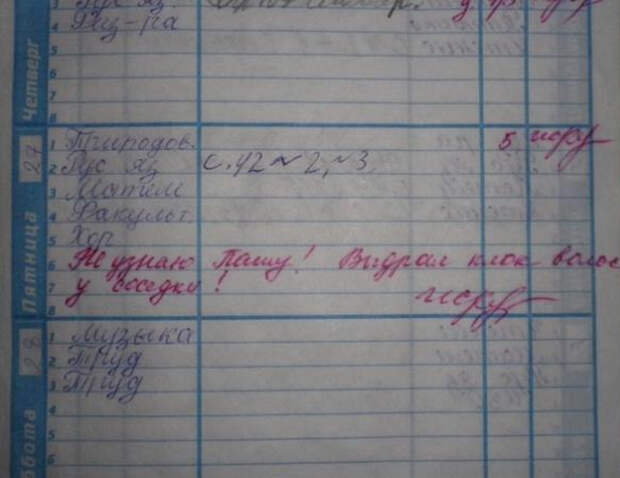 Рус яз.
4 Физ-ра
5
6
7
8
Четверг
27
1 Природов. 5
2 Рус яз с. 42 № 2, № 3
3 Матем
4 Факульт.
5 Хор
6 Не узнаю Пашу! Выдрал клок волос
7 у соседки!
8
Пятница
28
1 Музыка
2 Труд
3 Труд
4
5
6
ббота